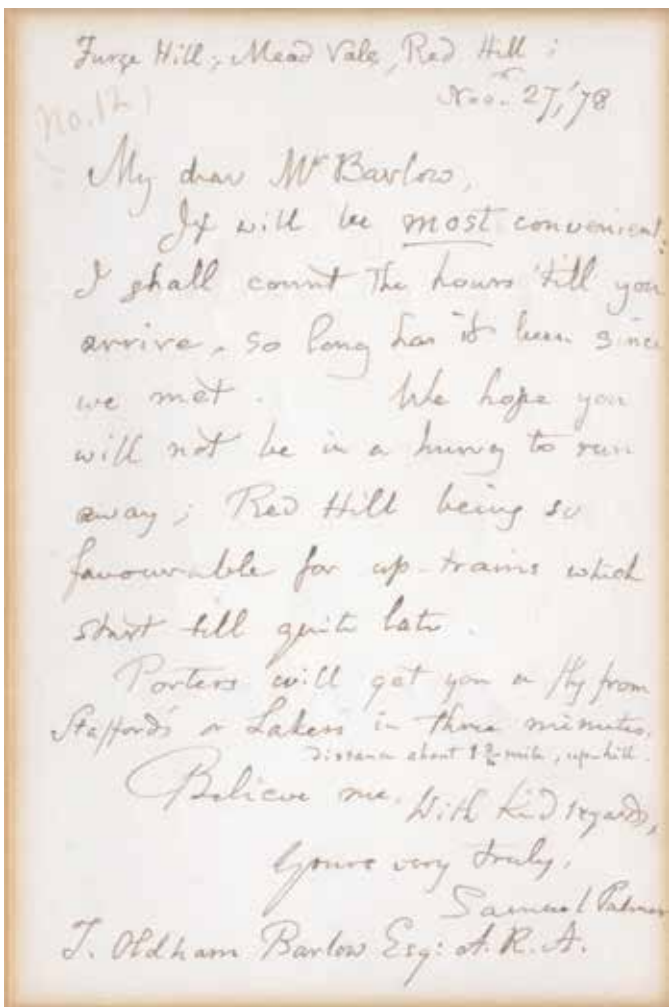 Furze Hill; Mead Vale, Red Hill;
Novr. 27, '78
(No. 12)
My dear Mr Barlow,
It will be most convenient.
I shall count the hours 'till you
arrive, so long has it been since
we met. We hope you
will not be in a hurry to run
away; Red Hill being so
favourable for up-trains which
start till quite late.
Porters will get you a fly from
Stafford's or Lakers in three minutes.
Distance about mile, up-hill.
Believe me, With kind regards,
Yours very truly,
Samuel Palmer
T. Oldham Barlow Esq: A.R.A.